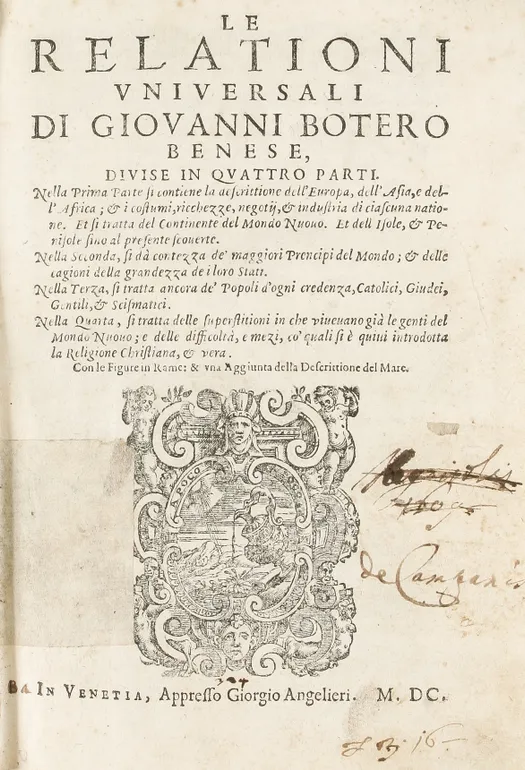 LE
RELATIONI
VNIVERSALI
DI GIOVANNI BOTERO
BENESE,
DIVISE IN QVATTRO PARTI.
Nella Prima Parte ſi contiene la deſcrittione dell'Europa, dell'Aſia, e del-
l'Africa; & i coſtumi, ricchezze, negotij, & induſtria di ciaſcuna natio-
ne. Et ſi tratta del Continente del Mondo Nuouo. Et dell Iſole, & Pe-
niſole ſino al preſente ſcouerte.
Nella Seconda, ſi dà contezza de' maggiori Prencipi del Mondo; & delle
cagioni della grandezza de i loro Stati.
Nella Terza, ſi tratta ancora de' Popoli d'ogni credenza, Catolici, Giudei,
Gentili, & Sciſmatici.
Nella Quarta, ſi tratta delle ſuperſtitioni in che viueuano già le genti del
Mondo Nuouo; e delle difficoltà, e mezi, co' quali ſi è quiui introdotta
la Religione Chriſtiana, & vera.
Con le Figure in Rame: & vna Aggiunta della Deſcrittione del Mare.
A POLO
de Campanis
IN VENETIA, Appreſſo Giorgio Angelieri. M. DC.